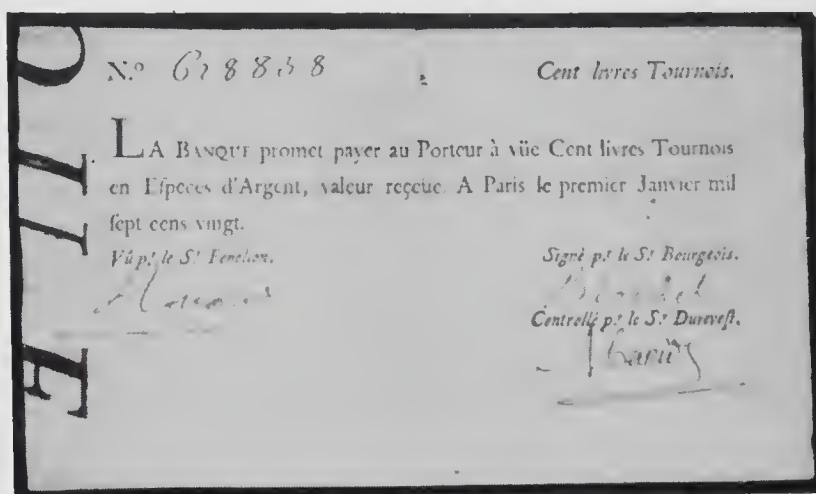 N.º 628838 Cent livres Tournois.
LA BANQUE promet payer au Porteur à vüe Cent livres Tournois
en Eſpeces d'Argent, valeur reçeüe. A Paris le premier Janvier mil
ſept cens vingt.
Vû p.r le S.r Fenelon. Signé p.r le S.r Bourgeois.
Controllé p.r le S.r Dureveſt.